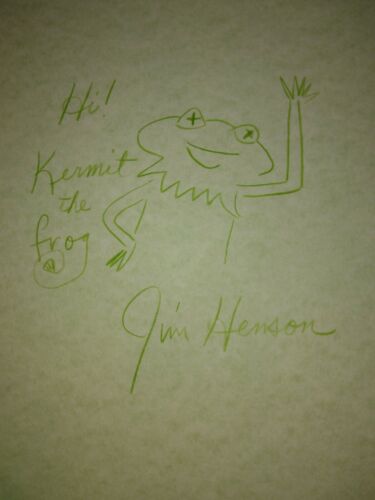 Hi!
Kermit
the
frog
Jim Henson